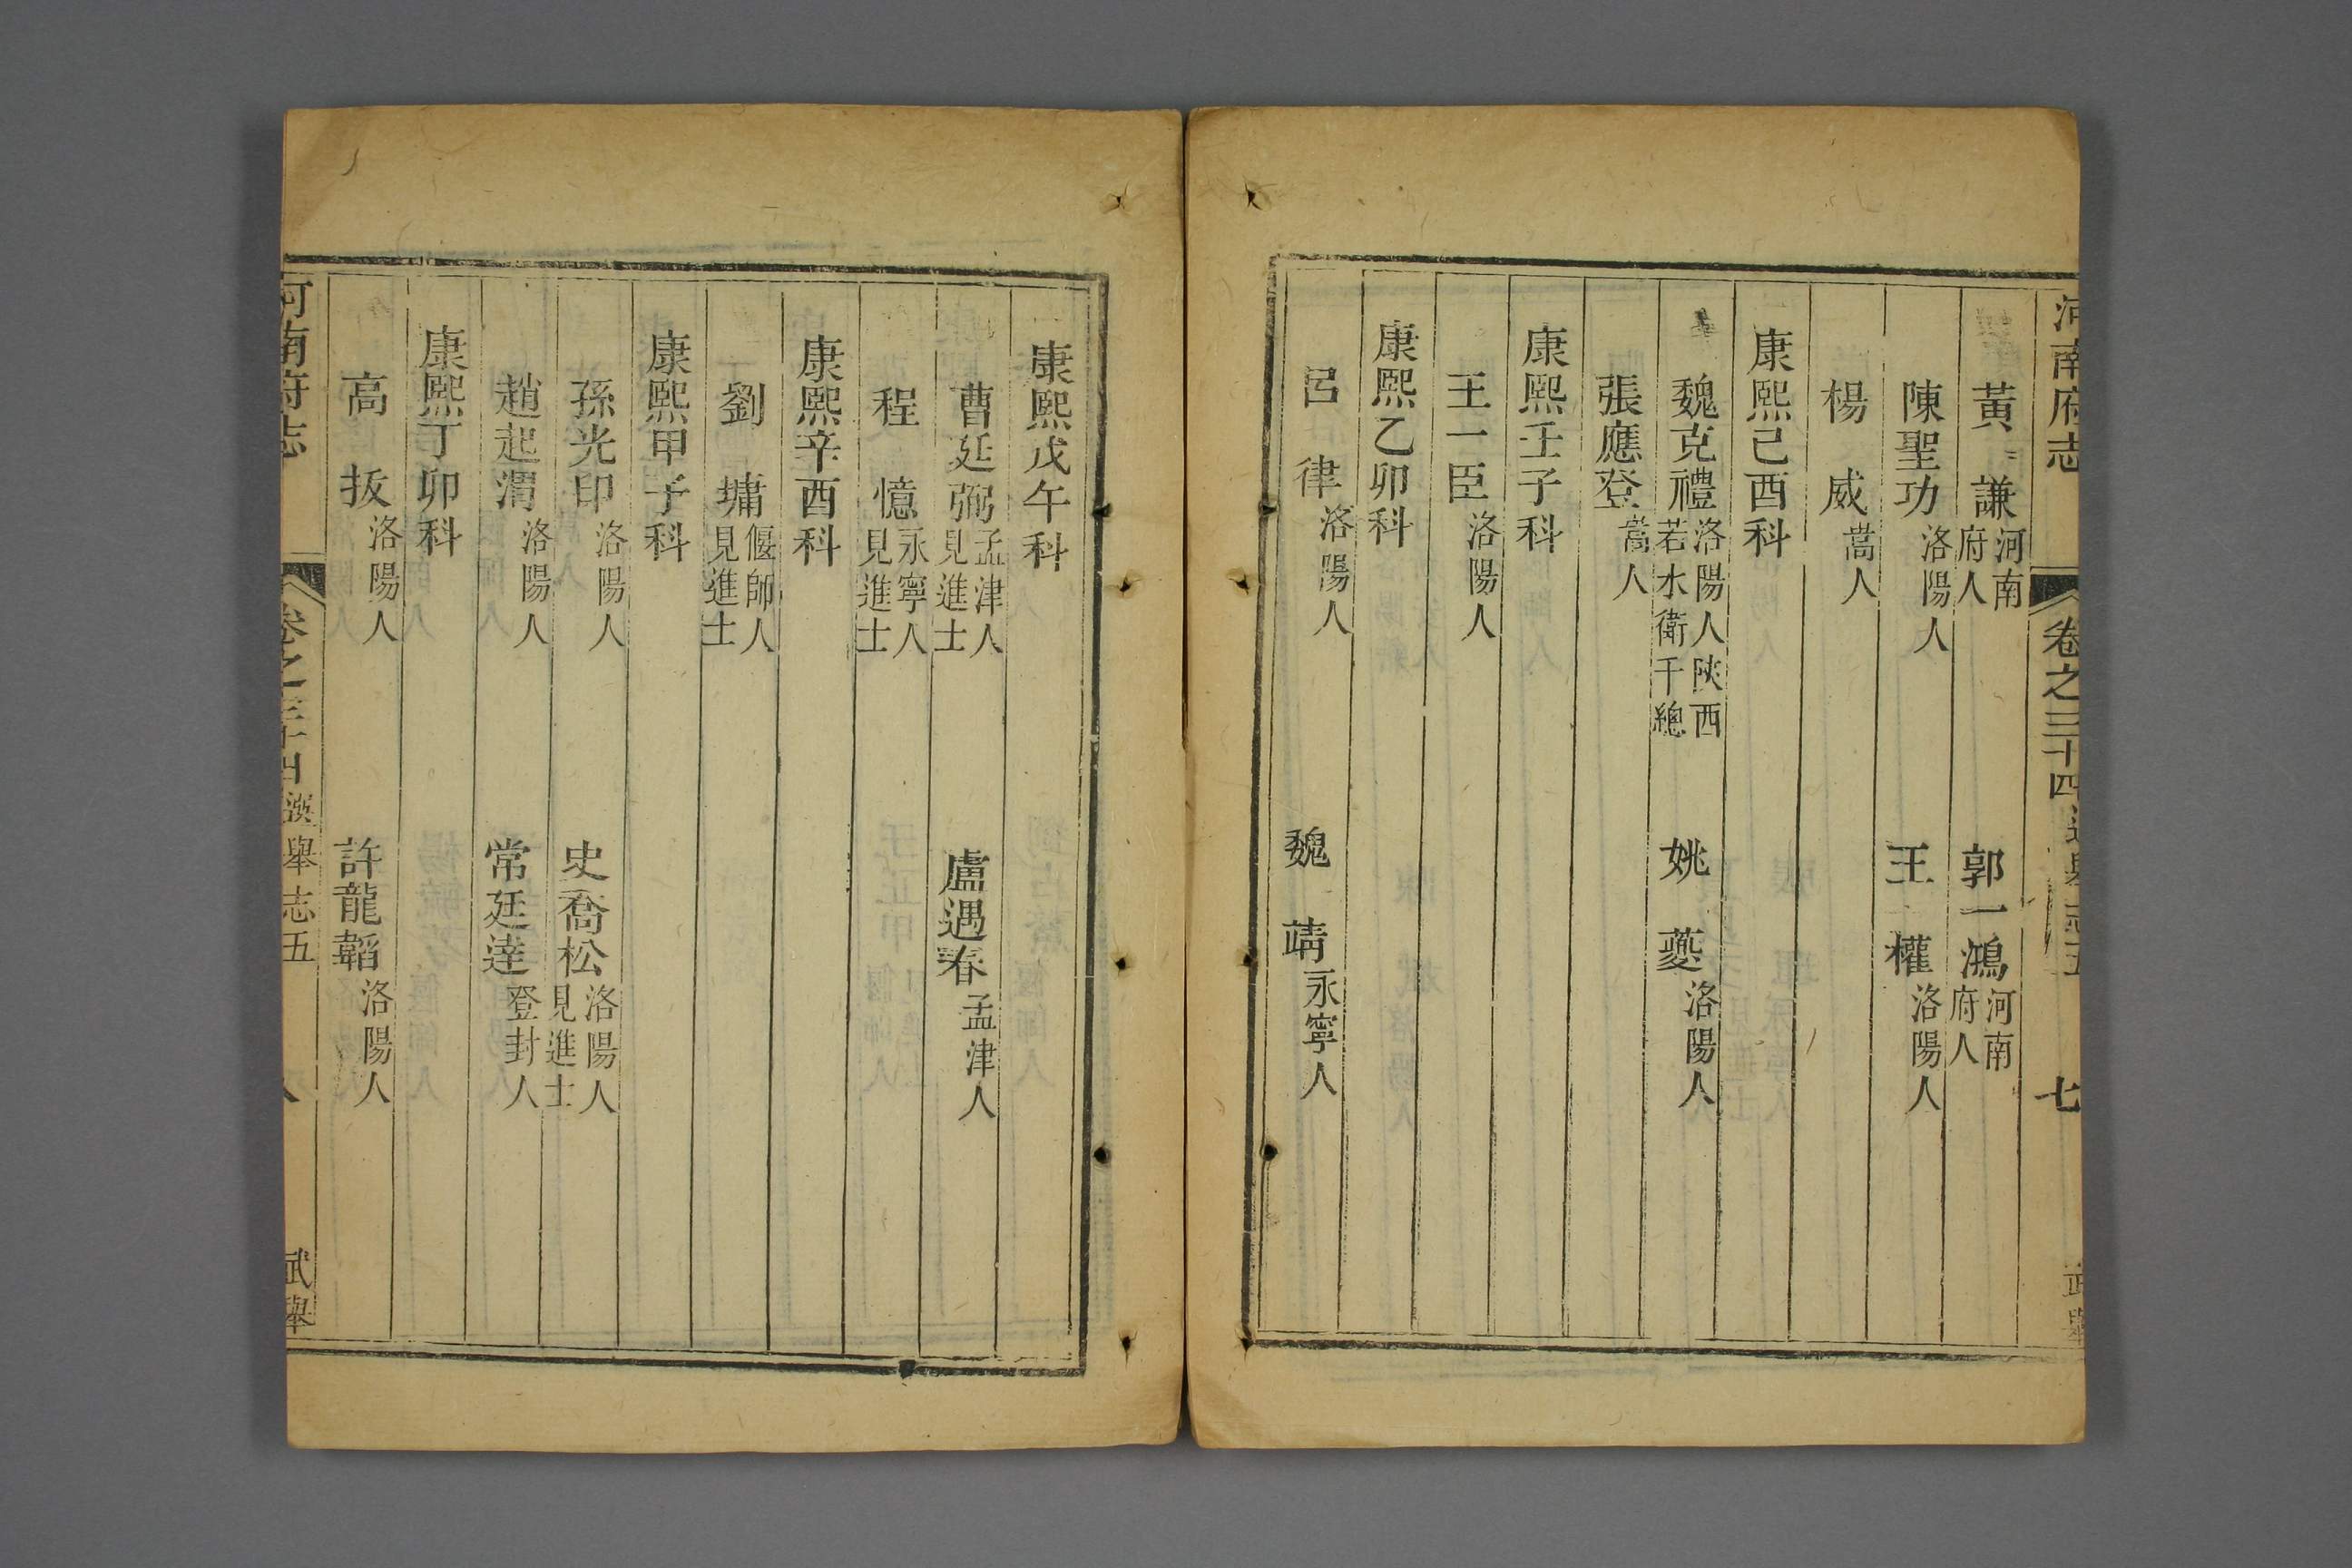 河南府志　卷之三十四　選舉志五　七　武舉
黃　謙　河南府人　郭一鴻　河南府人
陳聖功　洛陽人　王　權　洛陽人
楊　威　嵩人
康熙己酉科
魏克禮　洛陽人陝西若水衛千總　姚　夔　洛陽人
張應登　嵩人
康熙壬子科
王一臣　洛陽人
康熙乙卯科
呂　律　洛陽人　魏　靖　永寧人
康熙戊午科
曹延弼　孟津人見進士　盧遇春　孟津人
程　憶　永寧人見進士
康熙辛酉科
劉　墉　偃師人見進士
康熙甲子科
孫光印　洛陽人　史喬松　洛陽人見進士
趙起渭　洛陽人　常廷達　登封人
康熙丁卯科
高　扳　洛陽人　許龍韜　洛陽人
河南府志　卷之三十四　選舉志五　八　武舉